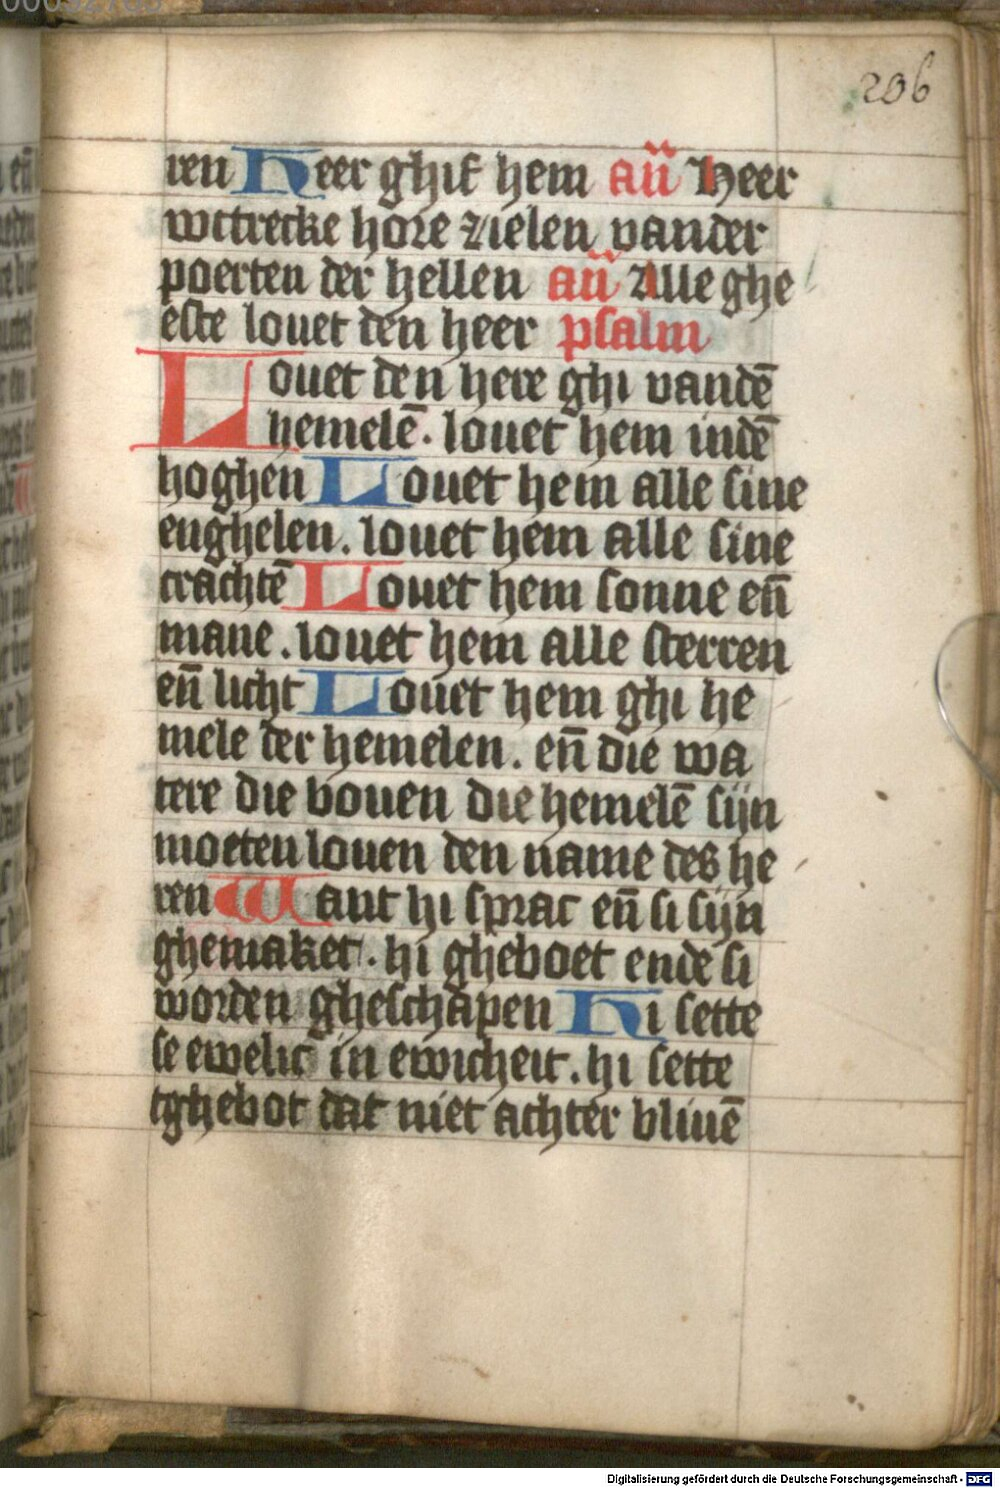 206
ren Heer ghif hem an̄ Heer
wttrecke hore zielen vander
poerten der hellen an̄ Alle ghe
este louet den heer psalm
Louet den here ghi vandē
hemelē. louet hem indē
hoghen Louet hem alle sine
enghelen. louet hem alle sine
crachtē Louet hem sonne en̄
mane. louet hem alle sterren
en̄ licht Louet hem ghi he
mele der hemelen. en̄ die wa
tere die bouen die hemelē sijn
moeten louen den name des he
ren Want hi sprac en̄ si sijn
ghemaket. hi gheboet ende si
worden gheschapen Hi sette
se ewelic in ewicheit. hi sette
tghebot dat niet achter bliuē
Digitalisierung gefördert durch die Deutsche Forschungsgemeinschaft - DFG